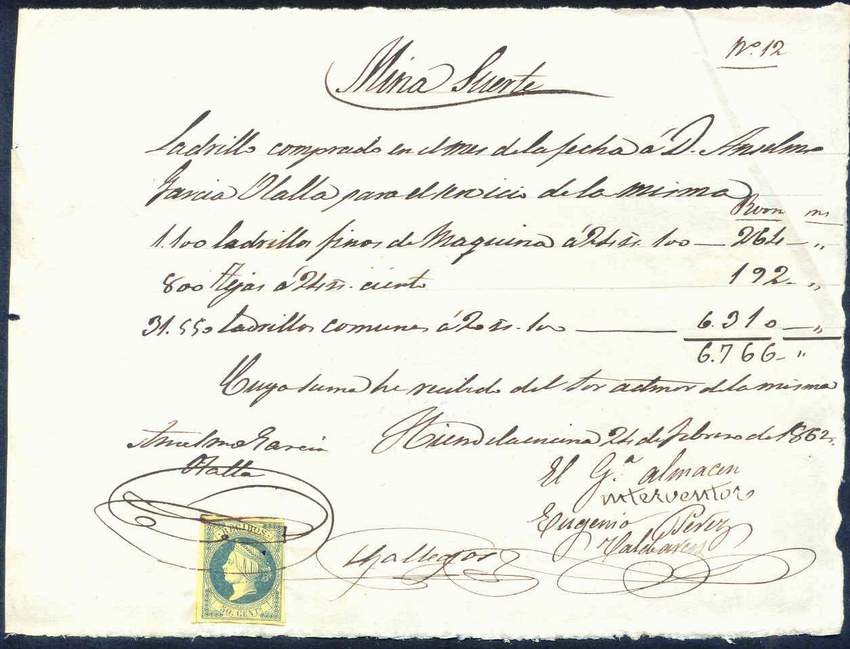 Nº. 12
Mina Suerte
Ladrillo comprado en el mes de la fecha á D. Anselmo
Garcia Olalla para el servicio de la misma
Rvon ms
1.100 ladrillos finos de Maquina á 24 rs. 100 — 264 — "
800 tejas á 24 rs. ciento 192 - "
31.550 ladrillos comunes á 20 rs. 100 — 6.310 — "
6.766 - "
Cuya suma he recibido del Sor admor de la misma
Hiendelaencina 24 de febrero de 1862.
Anselmo Garcia
Olalla
El G.ª almacen
interventor
Eugenio Perez
Gallegos
RECIBOS
50 CENT